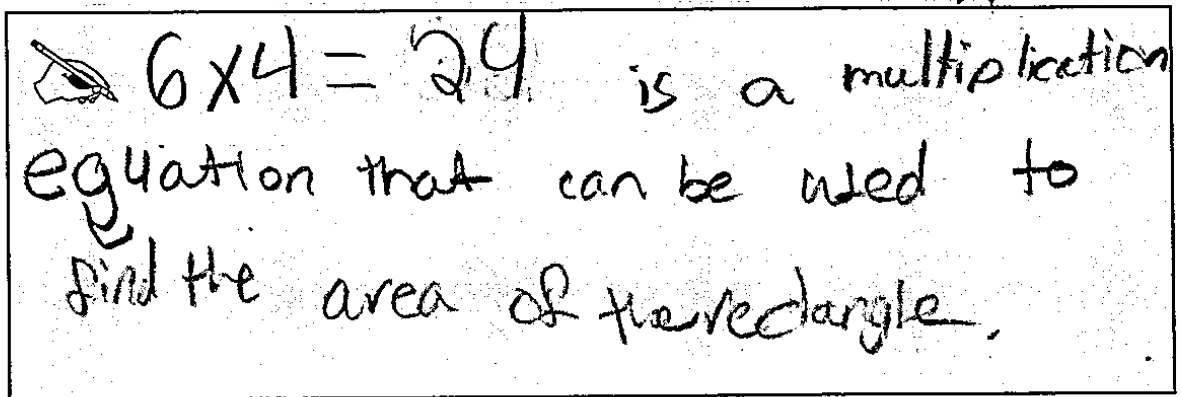 6x4 = 24 is a multiplication
equation that can be used to
find the area of the rectangle.